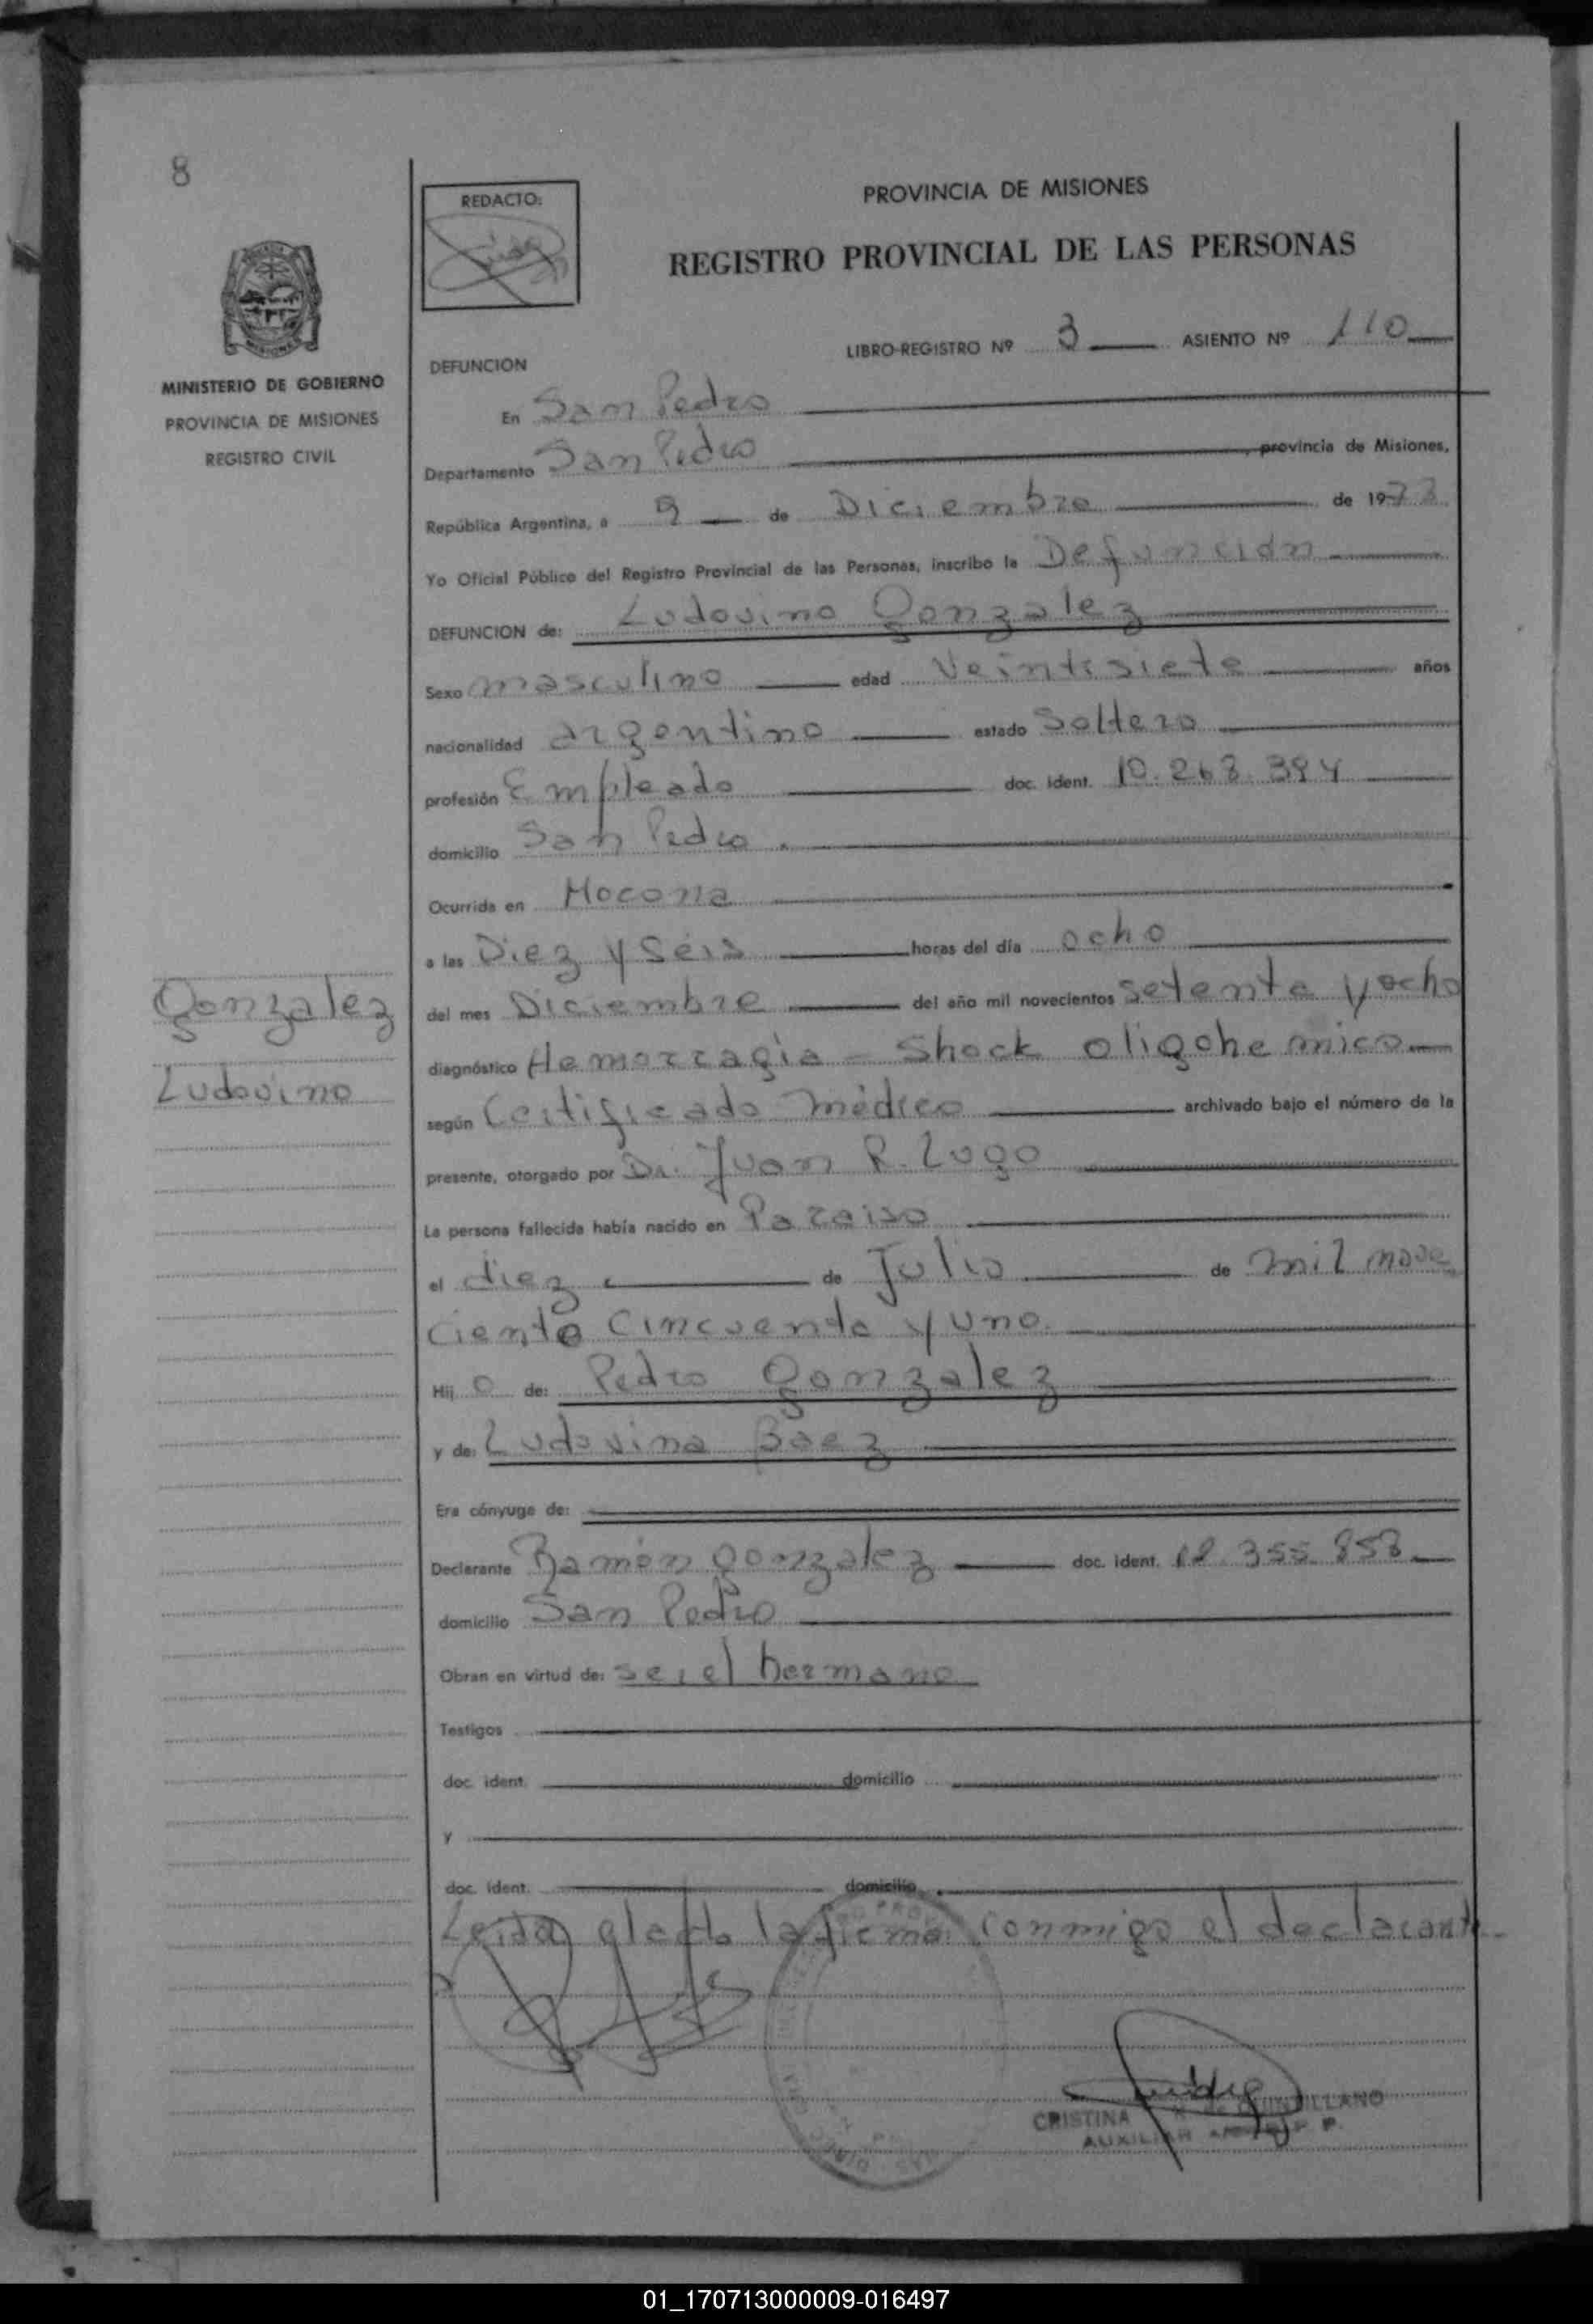 8
REDACTO:
PROVINCIA DE MISIONES
REGISTRO PROVINCIAL DE LAS PERSONAS
LIBRO-REGISTRO Nº 3 ASIENTO Nº 110
MINISTERIO DE GOBIERNO
PROVINCIA DE MISIONES
REGISTRO CIVIL
DEFUNCION
En San Pedro
Departamento San Pedro, provincia de Misiones,
República Argentina, a 9 de Diciembre de 19
Yo Oficial Público del Registro Provincial de las Personas, inscribo la Defunción
DEFUNCION de: Ludovino Gonzalez
Sexo masculino edad Veintisiete años
nacionalidad argentino estado Soltero
profesión Empleado doc. ident. 10.268.394
domicilio San Pedro.
Ocurrida en Mocona
a las Diez y Seis horas del día ocho
del mes Diciembre del año mil novecientos setenta y ocho
Gonzalez
Ludovino
diagnóstico Hemorragia - Shock oligohemico
según Certificado médico archivado bajo el número de la
presente, otorgado por Dr. Juan R. Lugo
La persona fallecida había nacido en Paraiso
el diez de Julio de mil nove
ciento cincuenta y uno.
Hij o de: Pedro Gonzalez
y de: Ludovina Baez
Era cónyuge de:
Declarante Ramón Gonzalez doc. ident. 12.355.858
domicilio San Pedro
Obran en virtud de: ser el hermano
Testigos
doc. ident. domicilio
y
doc. ident. domicilio
Leida el acta la firma conmigo el declarante
CRISTINA de QUINTILLANO
AUXILIAR
01_170713000009-016497